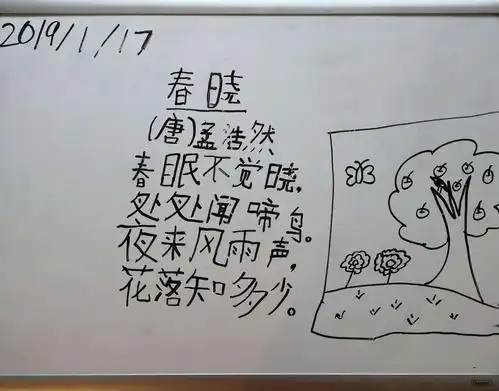 2019/1/17
春晓
(唐)孟浩然
春眠不觉晓,
处处闻啼鸟。
夜来风雨声,
花落知多少。